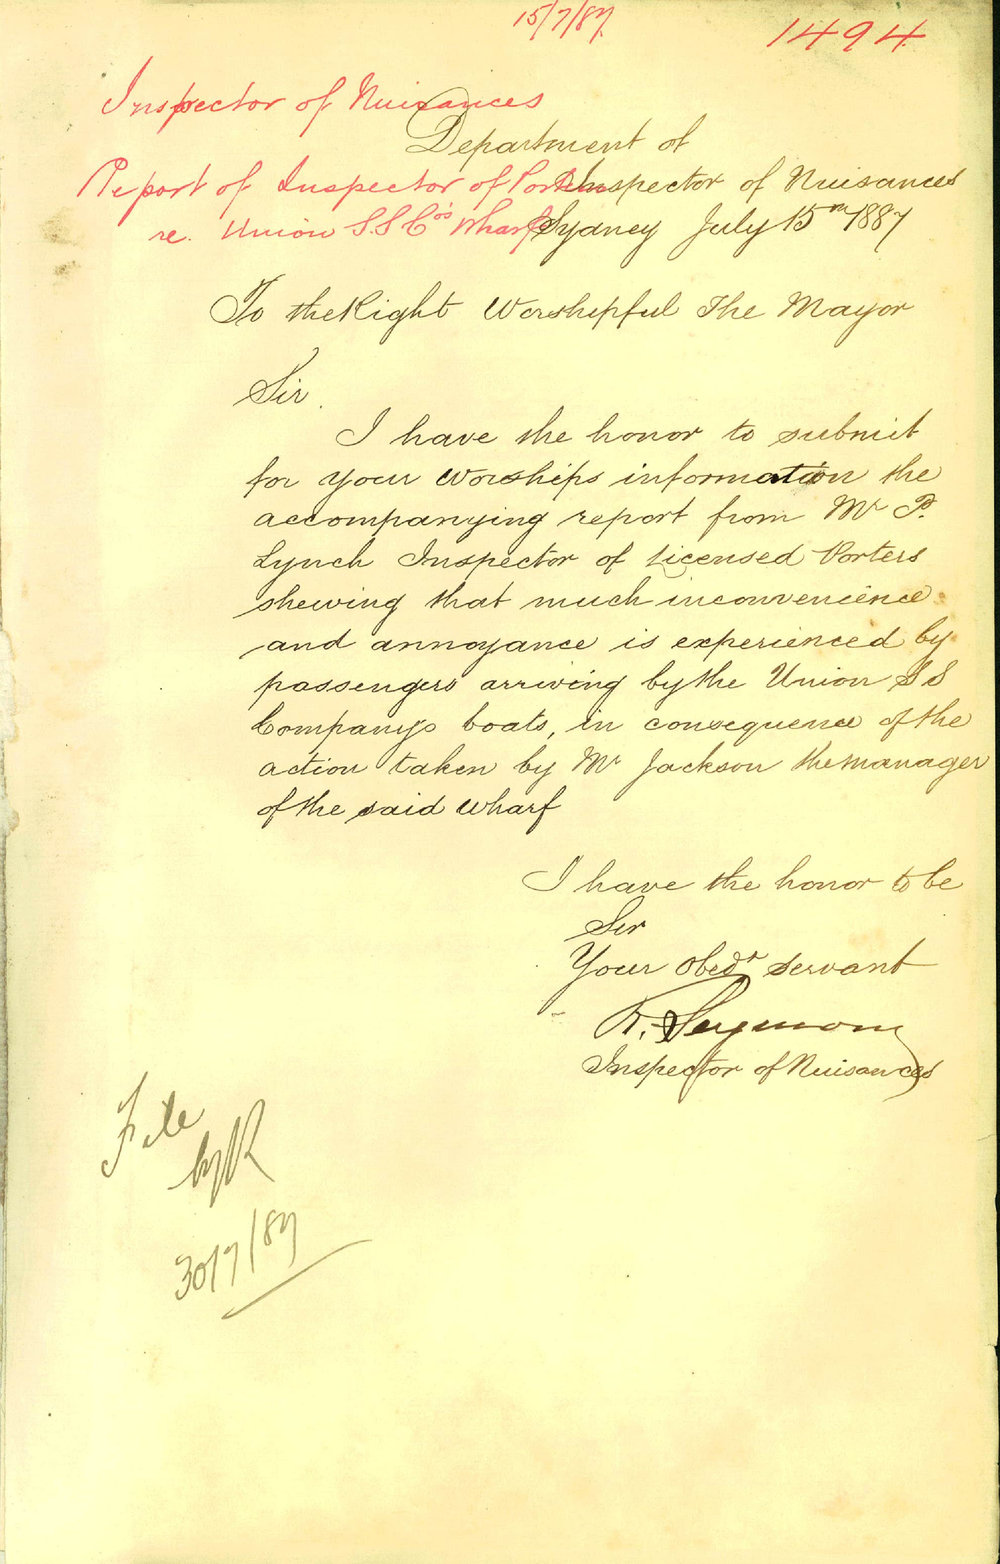 15/7/87
1494
Inspector of Nuisances
Report of Inspector of Porters
re. Union S.S Co's Wharf
Department of
Inspector of Nuisances
Sydney July 15th 1887
To the Right Worshipful The Mayor
Sir
I have the honor to submit
for your Worships information the
accompanying report from Mr P.
Lynch Inspector of Licensed Porters
shewing that much inconvenience
and annoyance is experienced by
passengers arriving by the Union SS
Companys boats, in consequence of the
action taken by Mr Jackson the manager
of the said wharf
I have the honor to be
Sir
Your obedt servant
R. Seymour
Inspector of Nuisances
File
30/7/87